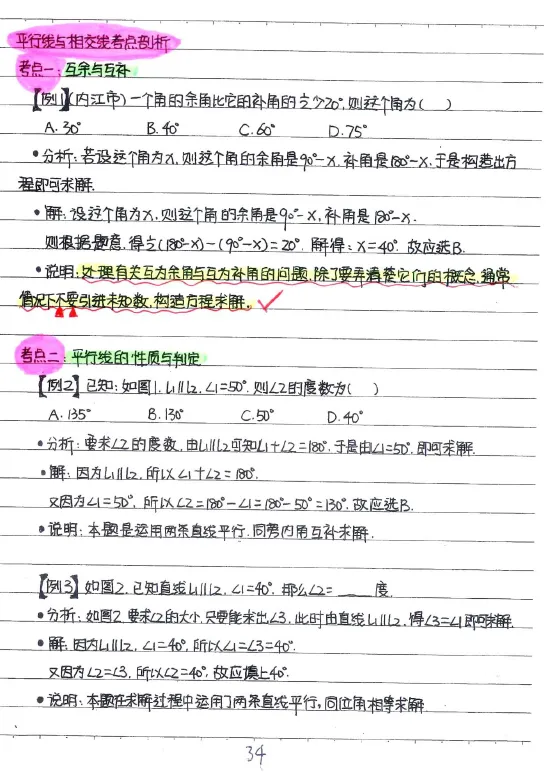 平行线与相交线考点剖析
考点一:互余与互补
【例1】(内江市)一个角的余角比它的补角的½少20°,则这个角为( )
A.30° B.40° C.60° D.75°
•分析:若设这个角为x,则这个角的余角是90°-x,补角是180°-x,于是构造出方
程即可求解.
•解:设这个角为x,则这个角的余角是90°-x,补角是180°-x.
则根据题意,得½(180°-x)-(90°-x)=20°.解得:x=40°.故应选B.
•说明:处理有关互为余角与互为补角的问题,除了要弄清楚它们的概念,通常
情况下不要引进未知数,构造方程求解.
考点二:平行线的性质与判定
【例2】已知:如图1,L1∥L2,∠1=50°,则∠2的度数为( )
A.135° B.130° C.50° D.40°
•分析:要求∠2的度数,由L1∥L2可知∠1+∠2=180°,于是由∠1=50°,即可求解.
•解:因为L1∥L2,所以∠1+∠2=180°.
又因为∠1=50°,所以∠2=180°-∠1=180°-50°=130°.故应选B.
•说明:本题是运用两条直线平行,同旁内角互补求解.
【例3】如图2,已知直线L1∥L2,∠1=40°,那么∠2=____度.
•分析:如图2,要求∠2的大小,只要能求出∠3,此时由直线L1∥L2,得∠3=∠1即可求解.
•解:因为L1∥L2,∠1=40°,所以∠1=∠3=40°.
又因为∠2=∠3,所以∠2=40°,故应填上40°.
•说明:本题在求解过程中运用了两条直线平行,同位角相等求解.
34